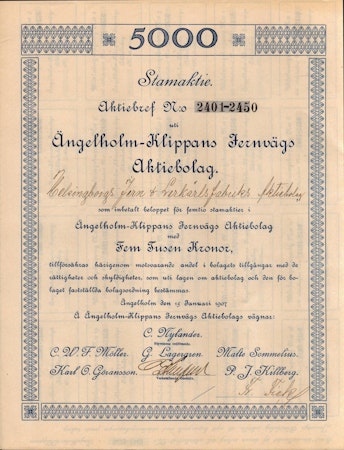 5000
Stamaktie.
Aktiebref No 2401-2450
uti
Ängelholm-Klippans Jernvägs
Aktiebolag.
Helsingborgs Jern & Lerkärlsfabriks Aktiebolag
som inbetalt beloppet för femtio stamaktier i
Ängelholm-Klippans Jernvägs Aktiebolag
med
Fem Tusen Kronor,
tillförsäkras härigenom motsvarande andel i bolagets tillgångar med de
rättigheter och skyldigheter, som uti lagen om aktiebolag och den för bo-
laget fastställda bolagsordning bestämmas.
Ängelholm den 15 Januari 1907.
Å Ängelholm-Klippans Jernvägs Aktiebolags vägnar:
C. Nyländer.
C. W. F. Möller. G. Lagergren Malte Sommelius.
Karl O. Göransson. P. J. Killberg.